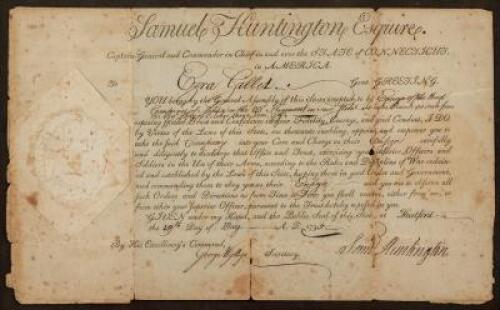 Samuel Huntington Esquire.
Captain General and Commander in Chief in and over the STATE of CONNECTICUT,
in AMERICA.
To Ezra Gent. GREETING.
YOU being by the General Assembly of this State accepted to be Ensign of the
Company in the Regiment in
special Trust and Confidence in your Fidelity, Courage, and good Conduct, I DO
by Virtue of the Laws of this State, me thereunto enabling, appoint and impower you to
take the said Company into your Care and Charge as their Ensign carefully
and diligently to discharge that Office and Trust, exercising your Inferior Officers and
Soldiers in the Use of their Arms, according to the Rules and Discipline of War ordained
and established by the Laws of this State, keeping them in good Order and Government,
and commanding them to obey you as their Ensign and you are to observe all
such Orders and Directions as from Time to Time you shall receive, either from me, or
from other your Superior Officer, pursuant to the Trust hereby reposed in you.
GIVEN under my Hand, and the Public Seal of this State, at Hartford
the Day of May A. D.
By His Excellency's Command,
George Wyllys Secretary
Saml Huntington